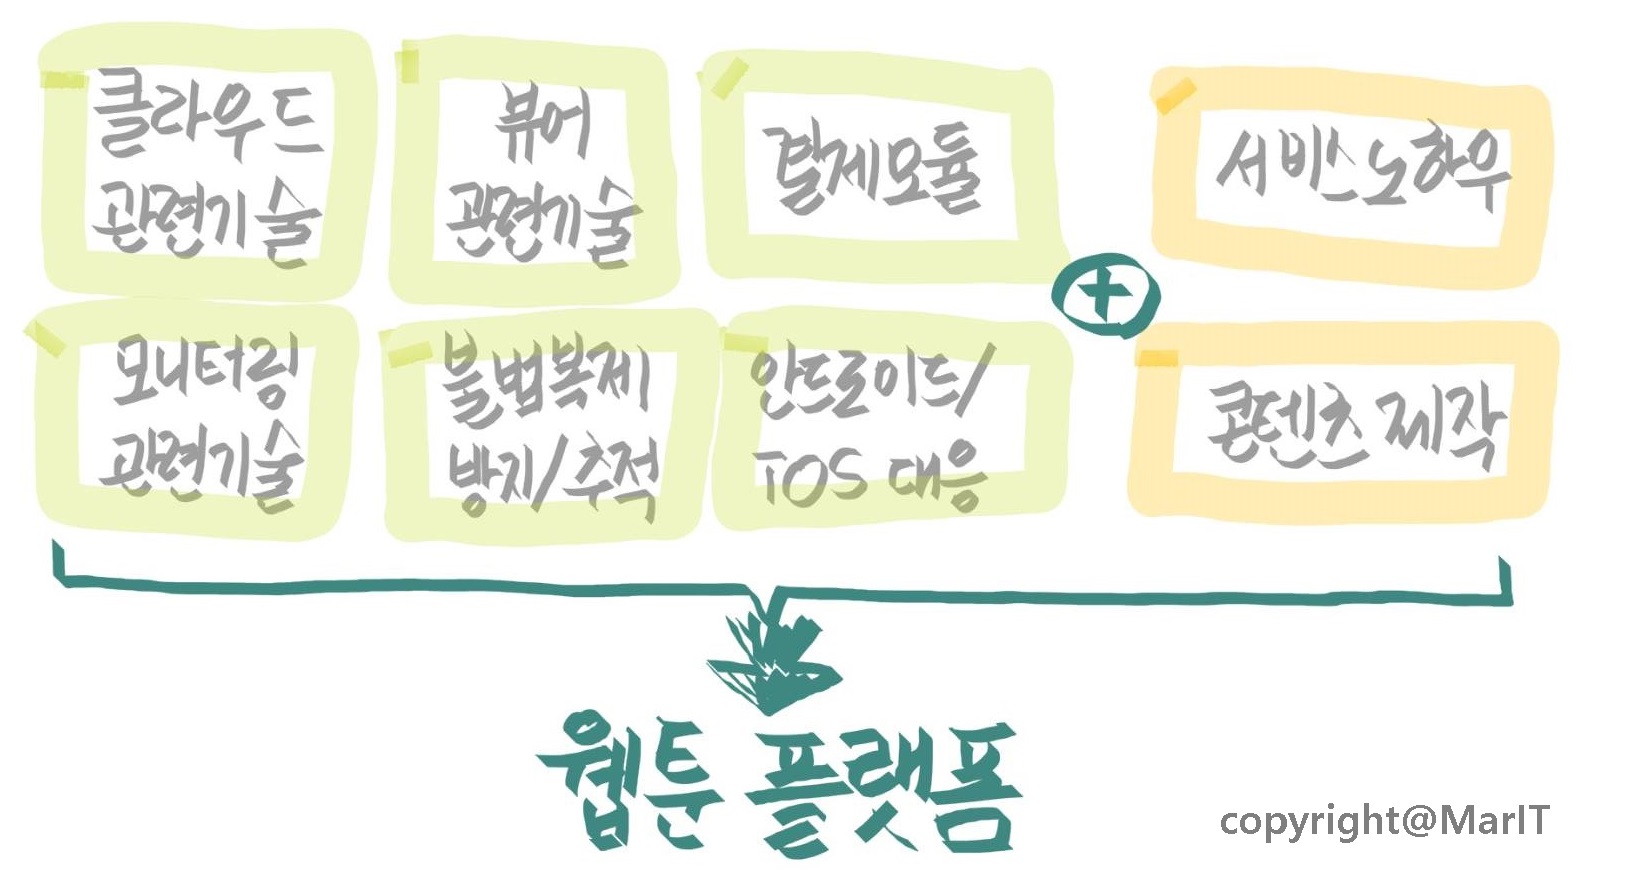 클라우드
관련기술
뷰어
관련기술
결제모듈
서비스 노하우
모니터링
관련기술
불법복제
방지/추적
안드로이드/
IOS 대응
콘텐츠 제작
+
웹툰 플랫폼
copyright@MarIT